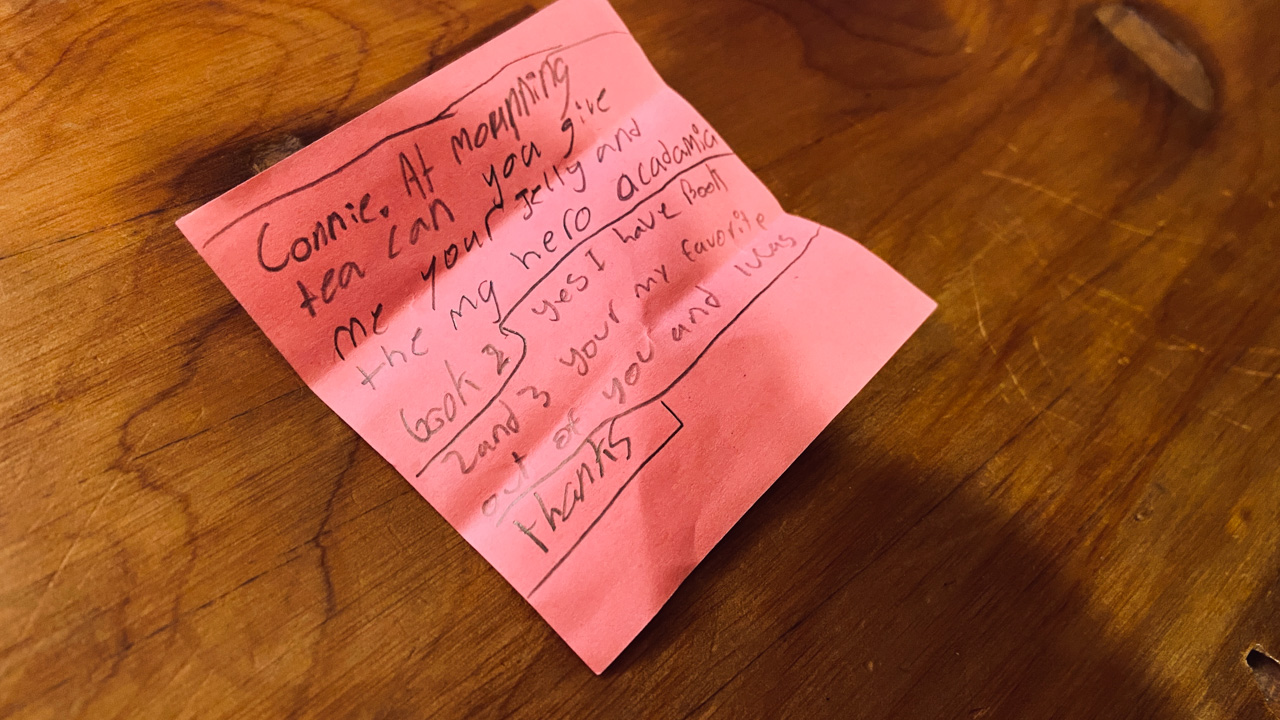 Connie. At mornning
tea can you give
me your jelly and
the my hero acadamia
book 2
yes I have Book
2 and 3 your my favorite
out of you and lucas
thanks